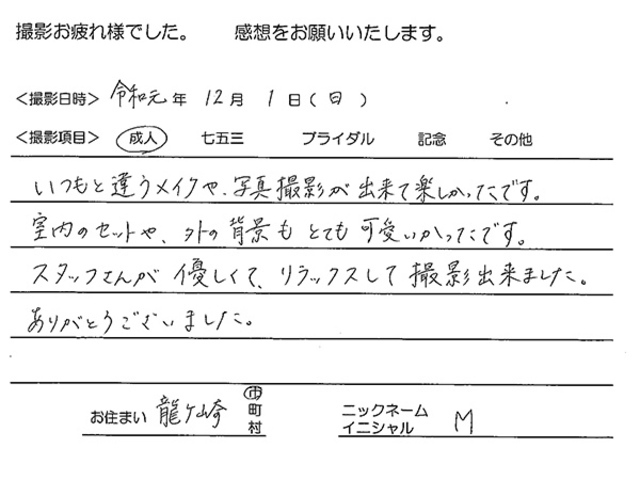 撮影お疲れ様でした。 感想をお願いいたします。
＜撮影日時＞ 令和元 年 12 月 1 日 ( 日 )
＜撮影項目＞ 成人 七五三 ブライダル 記念 その他
いつもと違うメイクや、写真撮影が出来て楽しかったです。
室内のセットや、外の背景もとても可愛いかったです。
スタッフさんが優しくて、リラックスして撮影出来ました。
ありがとうございました。
お住まい 龍ケ崎 市 町 村
ニックネーム イニシャル M